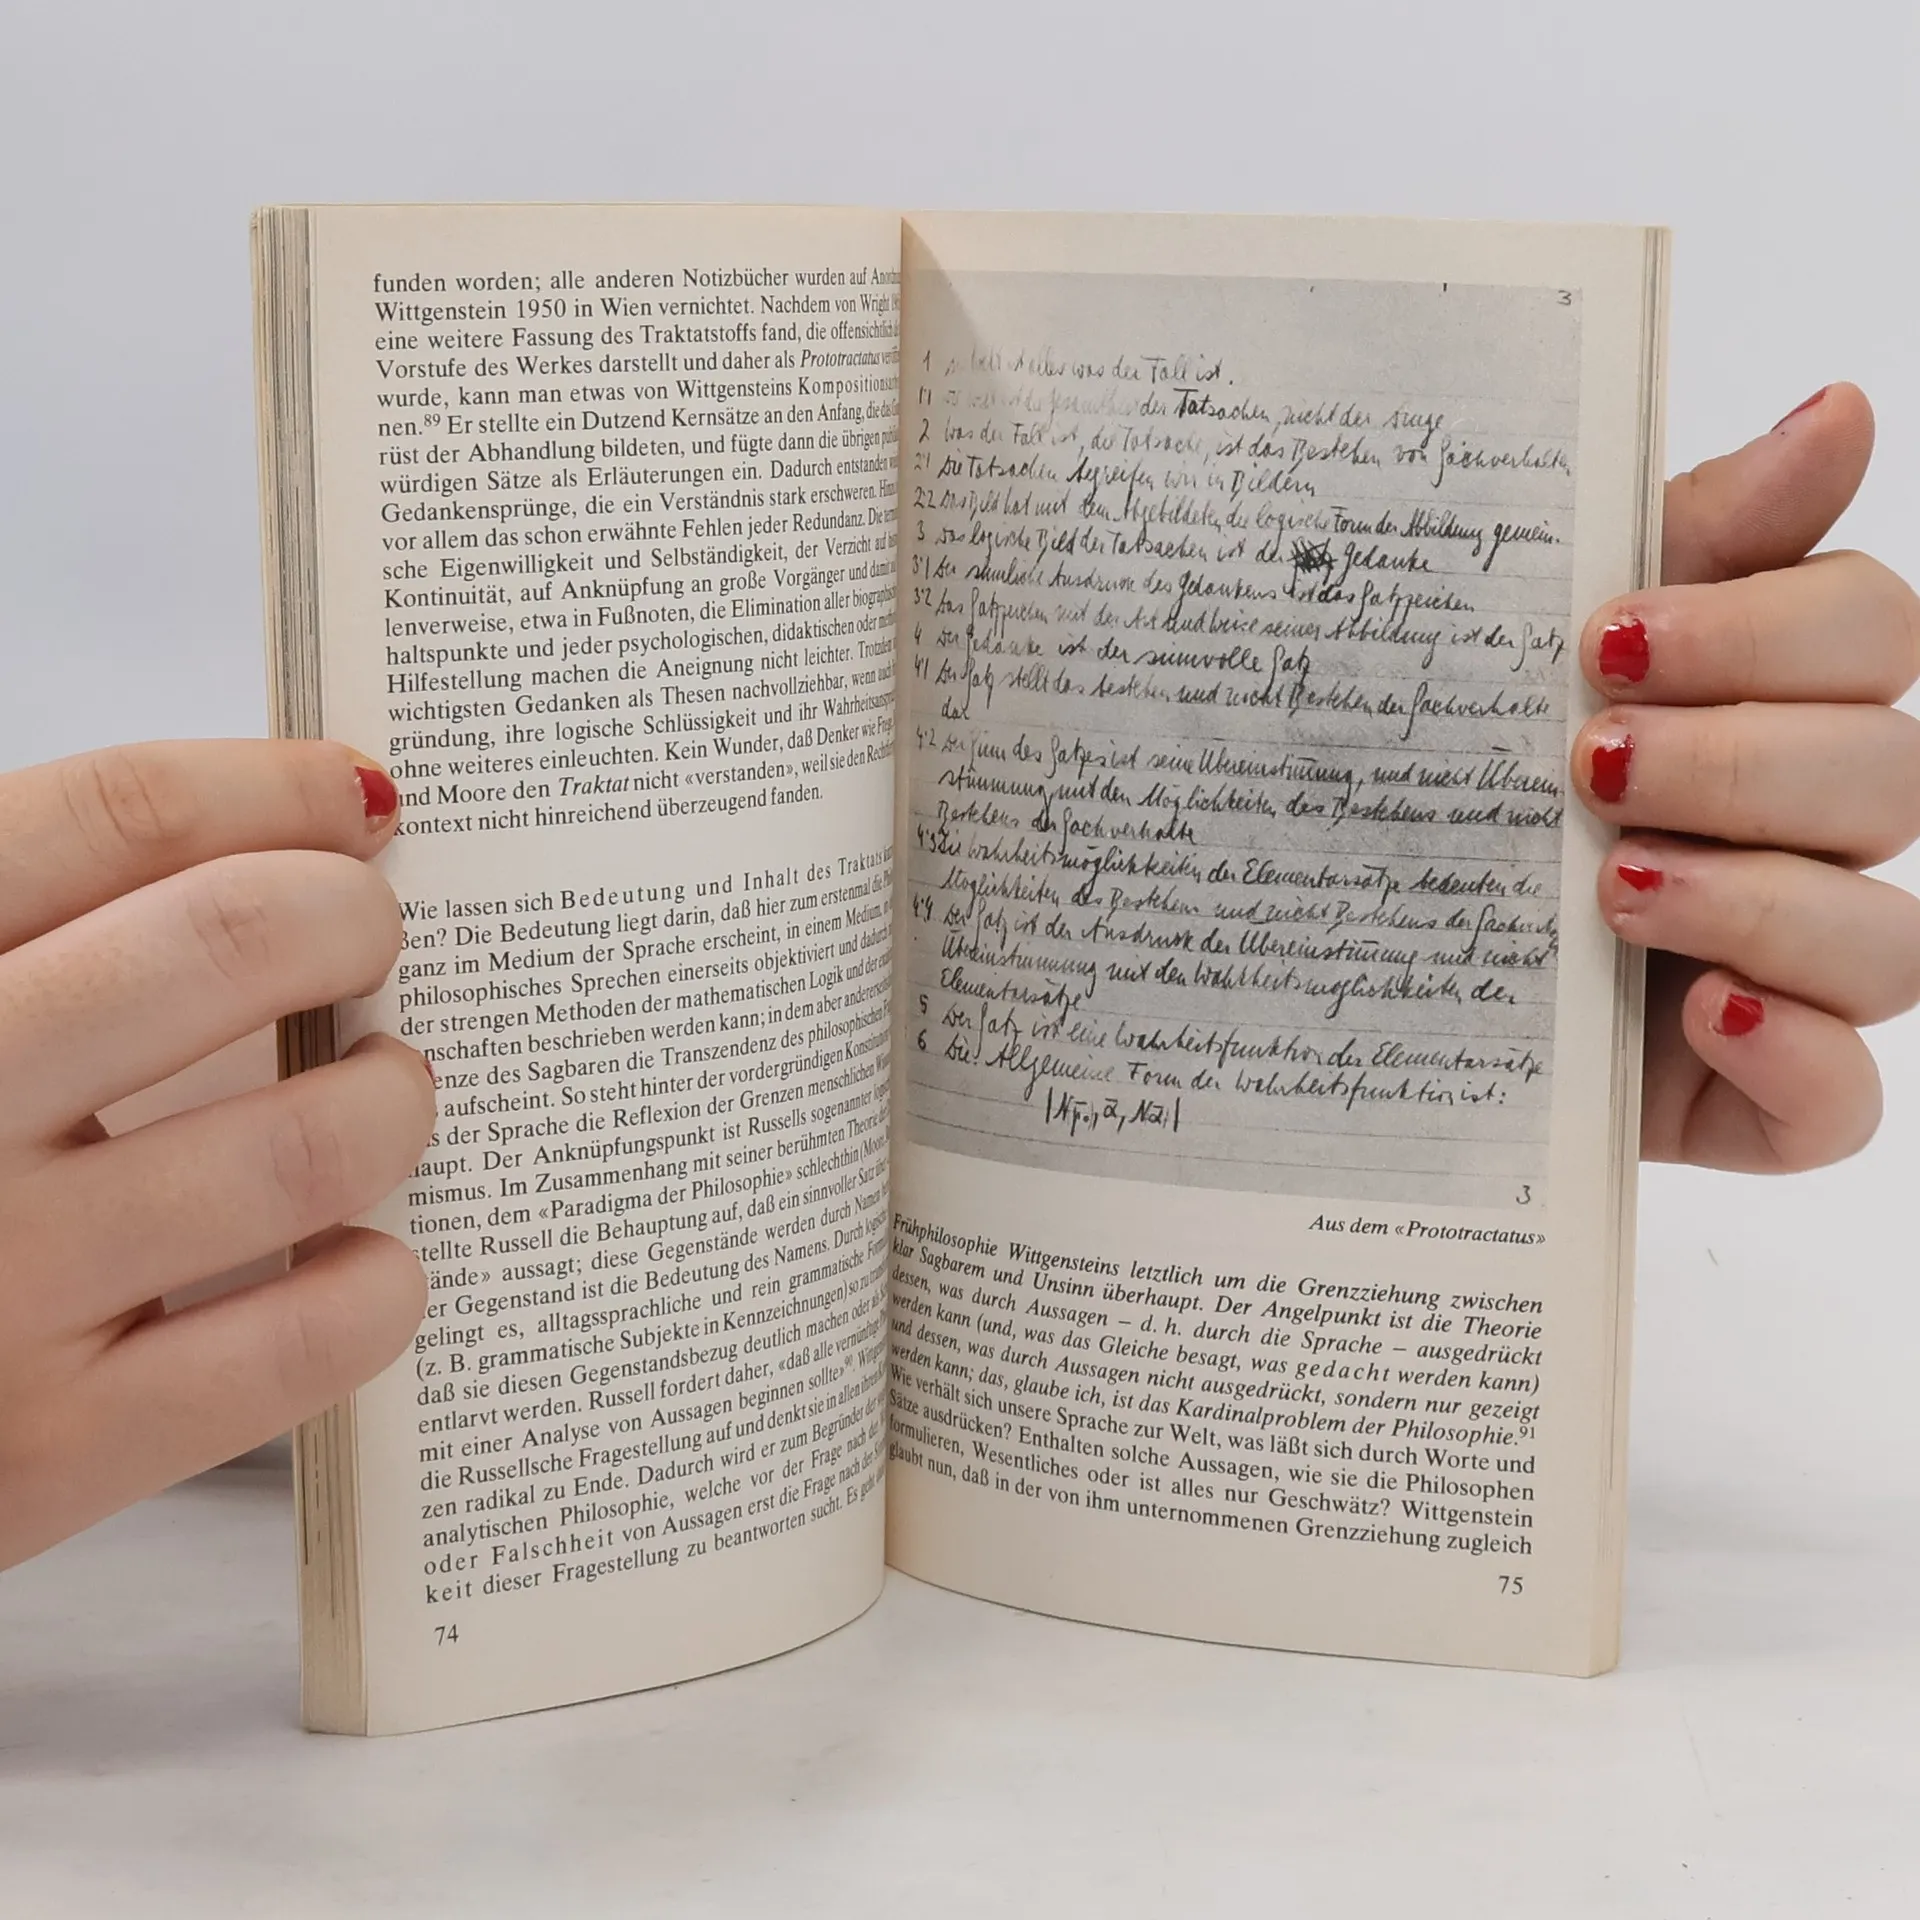 funden worden; alle anderen Notizbücher wurden auf
Wittgenstein 1950 in Wien vernichtet. Nachdem von Wright
eine weitere Fassung des Traktatstoffs fand, die offensichtlich
Vorstufe des Werkes darstellt und daher als Prototractatus
wurde, kann man etwas von Wittgensteins
nen.89 Er stellte ein Dutzend Kernsätze an den Anfang, die das
rüst der Abhandlung bildeten, und fügte dann die übrigen
würdigen Sätze als Erläuterungen ein. Dadurch entstanden
Gedankensprünge, die ein Verständnis stark erschweren.
vor allem das schon erwähnte Fehlen jeder Redundanz. Die
sche Eigenwilligkeit und Selbständigkeit, der Verzicht auf
Kontinuität, auf Anknüpfung an große Vorgänger und damit
lenverweise, etwa in Fußnoten, die Elimination aller
haltspunkte und jeder psychologischen, didaktischen oder
Hilfestellung machen die Aneignung nicht leichter. Trotzdem
wichtigsten Gedanken als Thesen nachvollziehbar, wenn auch
gründung, ihre logische Schlüssigkeit und ihr
ohne weiteres einleuchten. Kein Wunder, daß Denker wie
und Moore den Traktat nicht «verstanden», weil sie den
kontext nicht hinreichend überzeugend fanden.
Wie lassen sich Bedeutung und Inhalt des Traktats
ßen? Die Bedeutung liegt darin, daß hier zum erstenmal die
ganz im Medium der Sprache erscheint, in einem Medium,
philosophisches Sprechen einerseits objektiviert und dadurch
der strengen Methoden der mathematischen Logik und der
nschaften beschrieben werden kann; in dem aber andererseits
enze des Sagbaren die Transzendenz des philosophischen
aufscheint. So steht hinter der vordergründigen
der Sprache die Reflexion der Grenzen menschlichen
haupt. Der Anknüpfungspunkt ist Russells sogenannter
mismus. Im Zusammenhang mit seiner berühmten Theorie der
tionen, dem «Paradigma der Philosophie» schlechthin
stellte Russell die Behauptung auf, daß ein sinnvoller Satz
tände» aussagt; diese Gegenstände werden durch Namen
der Gegenstand ist die Bedeutung des Namens. Durch
gelingt es, alltagssprachliche und rein grammatische
(z. B. grammatische Subjekte in Kennzeichnungen) so zu
daß sie diesen Gegenstandsbezug deutlich machen oder als
entlarvt werden. Russell fordert daher, «daß alle vernünftige
mit einer Analyse von Aussagen beginnen sollte»90.
die Russellsche Fragestellung auf und denkt sie in allen ihren
zen radikal zu Ende. Dadurch wird er zum Begründer der
analytischen Philosophie, welche vor der Frage nach der
oder Falschheit von Aussagen erst die Frage nach der
keit dieser Fragestellung zu beantworten sucht. Es geht
74
3
1 ist alles was der Fall ist.
1·1 der Tatsachen, nicht der Dinge
2 Was der Fall ist, die Tatsache, ist das Bestehen von Sachverhalten
2·1 Die Tatsachen begreifen wir in Bildern
2·2 Das Bild hat mit dem Abgebildeten die logische Form der Abbildung gemein.
3 Das logische Bild der Tatsachen ist der Gedanke
3·1 Der sinnliche Ausdruck des Gedankens ist das Satzzeichen
3·2 Das Satzzeichen mit der Art und Weise seiner Abbildung ist der Satz
4 Der Gedanke ist der sinnvolle Satz
4·1 Der Satz stellt das bestehen und nicht Bestehen der Sachverhalte
dar
4·2 Der Sinn des Satzes ist seine Übereinstimmung, und nicht Überein-
stimmung mit den Möglichkeiten des Bestehens und nicht
Bestehens der Sachverhalte
4·3 Die Wahrheitsmöglichkeiten der Elementarsätze bedeuten die
Möglichkeiten des Bestehens und nicht Bestehens der
4·4 Der Satz ist der Ausdruck der Übereinstimmung und nicht
Übereinstimmung mit den Wahrheitsmöglichkeiten der
Elementarsätze
5 Der Satz ist eine Wahrheitsfunktion der Elementarsätze
6 Die Allgemeine Form der Wahrheitsfunktion ist:
3
Aus dem «Prototractatus»
Frühphilosophie Wittgensteins letztlich um die Grenzziehung zwischen
klar Sagbarem und Unsinn überhaupt. Der Angelpunkt ist die Theorie
dessen, was durch Aussagen – d. h. durch die Sprache – ausgedrückt
werden kann (und, was das Gleiche besagt, was gedacht werden kann)
und dessen, was durch Aussagen nicht ausgedrückt, sondern nur gezeigt
werden kann; das, glaube ich, ist das Kardinalproblem der Philosophie.91
Wie verhält sich unsere Sprache zur Welt, was läßt sich durch Worte und
Sätze ausdrücken? Enthalten solche Aussagen, wie sie die Philosophen
formulieren, Wesentliches oder ist alles nur Geschwätz? Wittgenstein
glaubt nun, daß in der von ihm unternommenen Grenzziehung zugleich
75